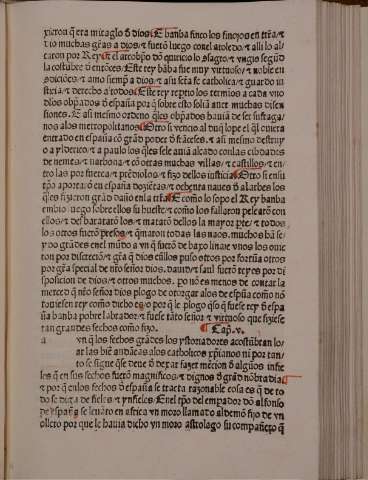 xieron q̃ era miraglo d̃ dios. E banba finco los finojos en tr̃a/ ⁊
dio muchas gr̃as a dios/ ⁊ fuerõ luego conel a toledo/ ⁊ alli lo al
çaron por Rey ⁊ el arçobpõ dõ quirico lo sagro/ ⁊ vngio segũd
la costũbre d̃ entõces. Este rey bãba fue muy virtuoso/ ⁊ noble en
sus fechos magnificos/ ⁊ dignos
sticia/ ⁊ derecho a todos. Este rey reptio los terminos a cada vno
dlos obp̃ados d̃ españa por q̃ sobre esto solia auer muchas disen
siones. E asi mesmo ordeno q̃les obp̃ados hauiã de ser sufraga
nos alos metropolitanos. Otro si vencio al duq̃ lope el q̃l ouiera
entrado en españa cõ grãd poder d̃ frãceses. ⁊ asi mesmo destruyo
a yldérico/ ⁊ a paulo los q̃les se auiã alçado conlas cibdades
de nemes/ ⁊ narbona/ ⁊ cõ otras muchas villas/ ⁊ castillos/ ⁊ en
tro las por fuerça/ ⁊ prẽdiolos/ ⁊ fizo dellos iusticia. Otro si en su
tp̃o aportarõ en españa dozientas/ ⁊ ochenta naues d̃ alarbes los
q̃les fizieron grãd daño enla tr̃a. E como lo sopo el Rey banba
embio luego sobre ellos su hueste/ ⁊ como los fallaron pelearõ con
ellos/ ⁊ desbarataron los/ ⁊ mataron dellos la mayor pte/ ⁊ todos
los otros fuerõ presos/ ⁊ q̃maron todas las naos. muchos hã se
ydo grãdes enel mũdo a vn q̃ fuerõ de baxo linaie vnos los ouie
ron por discreciõ/ ⁊ gr̃a q̃ dios enellos puso otros por fortũa otros
por gr̃a special de nr̃o señor dios. Dauid/ ⁊ saul fuerõ reyes por di
sposicion de dios/ ⁊ otros muchos. po nõ es menos de contar la
merced q̃ nr̃o señor dios plogo de otorgar alos de españa como nõ
touiesen rey como dicho es ⁊ por q̃ le plogo q̃lo q̃ fuese rey d̃ espa
ña banba pobre labrador/ ⁊ fuese tãto señor/ ⁊ virtuoso que fiziese
tan grandes fechos como fizo. Cap̃. v.
a vn q̃ los fechos grãdes los ystoriadores acostũbran lo
ar las biẽ andãças alos catholicos xp̃ianos ni por tan
to se sigue q̃se deue d̃ dexar fazer mẽcion d̃ algũos infie
les q̃ en sus fechos fuerõ magnificos/ ⁊ dignos d̃ grãd nõbradia
⁊ por q̃ enlos fechos d̃ españa se tracta razonable cosa es q̃ de to
do se diga de fieles/ ⁊ ynfieles. Enel tp̃o del emperador dõ alfonso
de españa se leuãto en africa vn moro llamado aldemõ fijo de vn
ollero por que le hauia dicho vn moro astrologo su compañero q̃